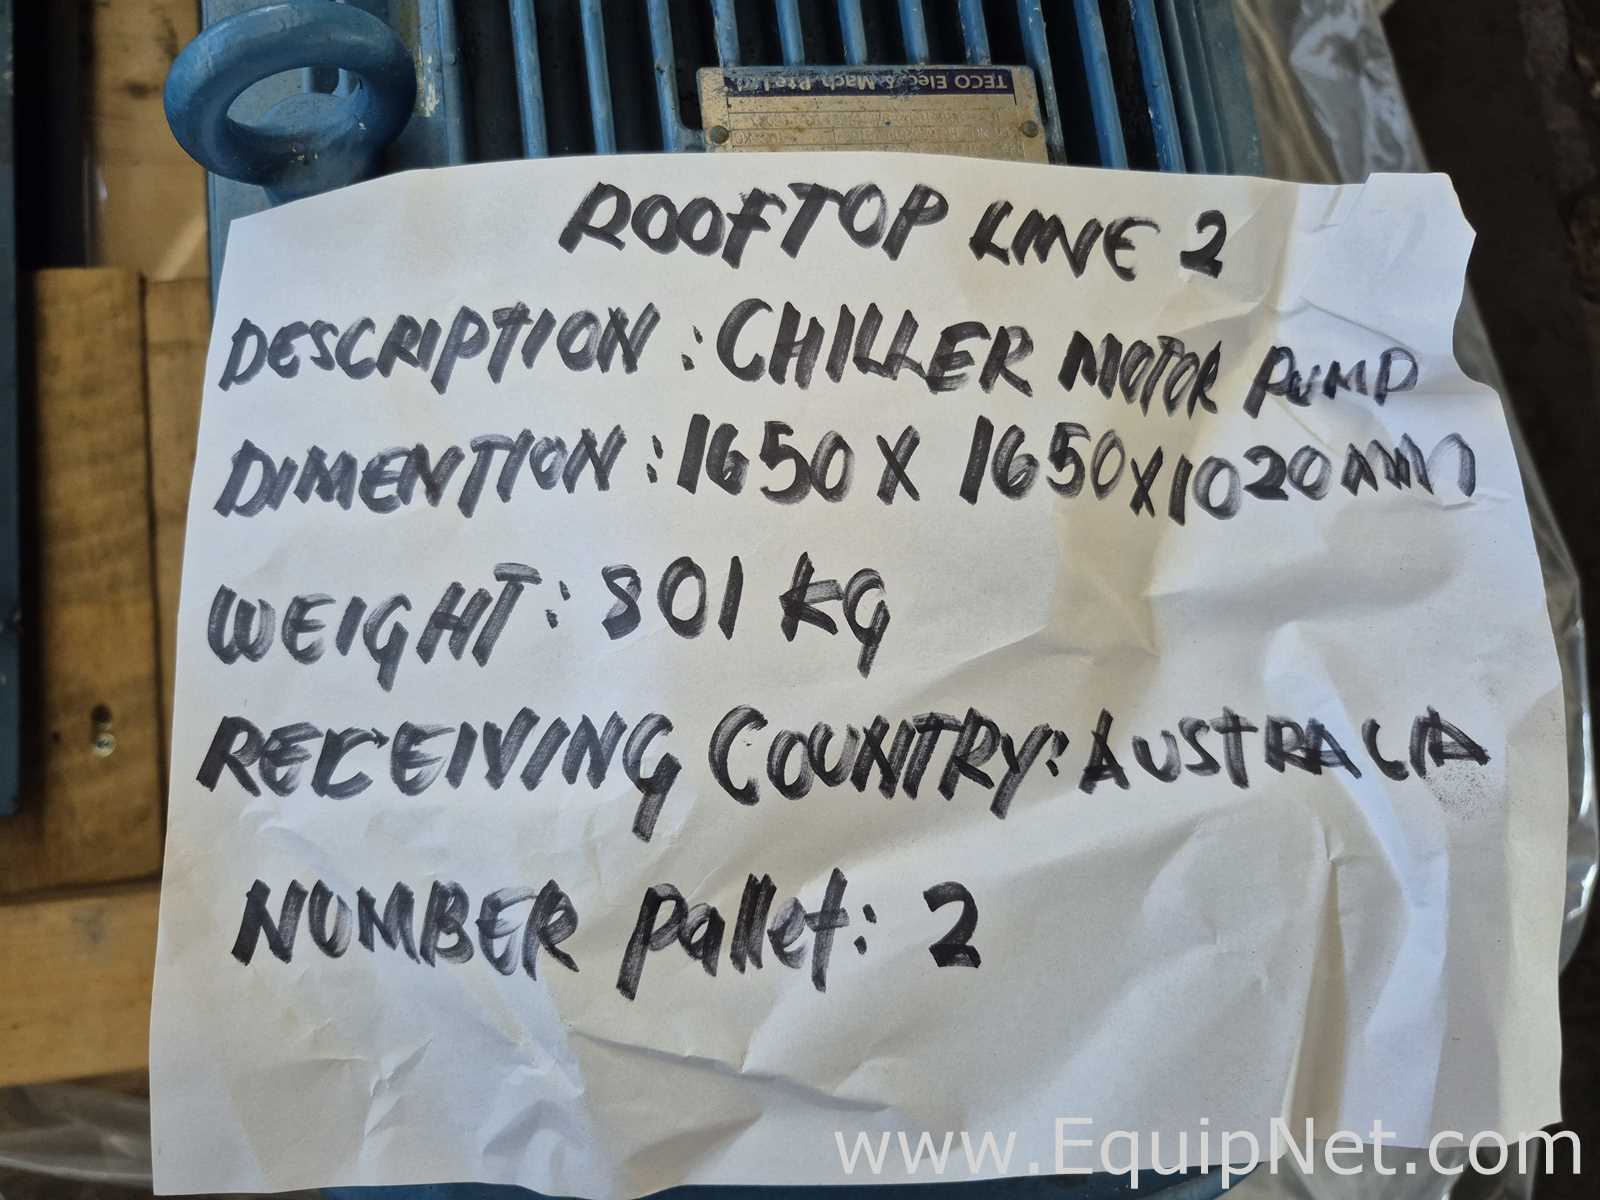 TECO Elec. & Mach. Pte Ltd
ROOFTOP LINE 2
DESCRIPTION : CHILLER MOTOR PUMP
DIMENTION : 1650 X 1650 X 1020 MM
WEIGHT : 801 KG
RECEIVING COUNTRY : AUSTRALIA
NUMBER Pallet : 2
www.EquipNet.com